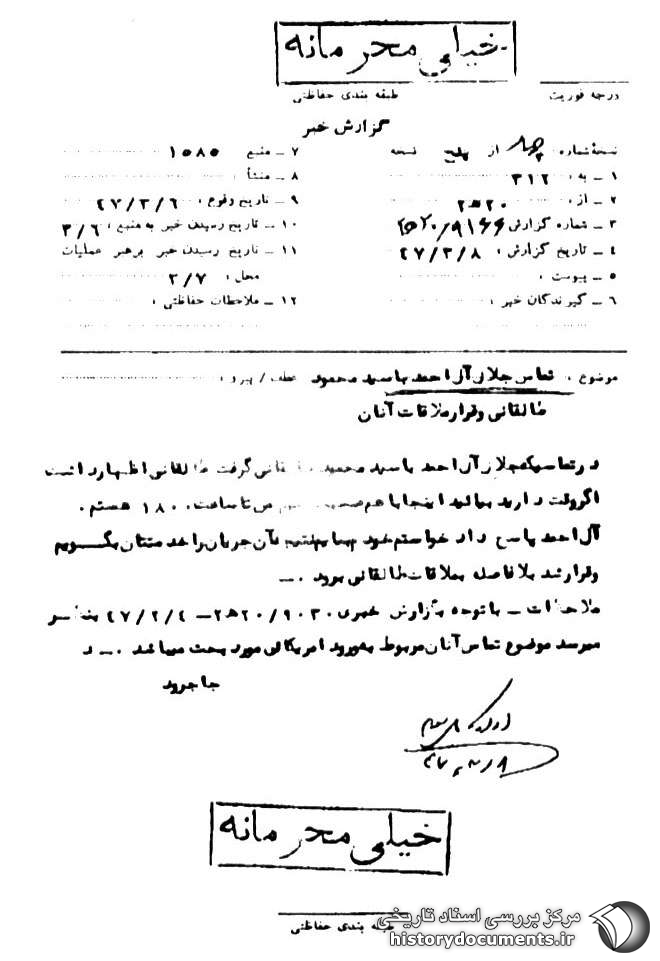 خیلی محرمانه
درجه فوریت
طبقه بندی حفاظتی
گزارش خبر
نسخهٔ شماره چهار از پنج نسخه
۱ ـ به ، ۳۱۲
۲ ـ از ، ۲۰ھ۲
۳ ـ شماره گزارش ۲۰/۹۱۶۶ھ۲
۴ ـ تاریخ گزارش ، ۲۷/۳/۸
۵ ـ پیوست ،
۶ ـ گیرندگان خبر ،
۷ ـ منبع ۱۵۸۵
۸ ـ منشأ ،
۹ ـ تاریخ وقوع ، ۲۷/۳/۶
۱۰ ـ تاریخ رسیدن خبر به منبع ، ۳/۶
۱۱ ـ تاریخ رسیدن خبر برهبر عملیات
محل ، ۳/۷
۱۲ ـ ملاحظات حفاظتی ،
موضوع ، تماس جلال آل احمد با سید محمود عطف / پیرو ،
طالقانی و قرار ملاقات آنان
در تماسیکه جلال آل احمد با سید محمود طالقانی گرفت طالقانی اظهار داشت
اگر وقت دارید بیائید اینجا با هم صحبت من تا ساعت ۱۸۰۰ هستم .
آل احمد پاسخ داد خواستم خودم بیایم آن جریان را خدمتتان بگویم
و قرار شد بلافاصله بملاقات طالقانی برود . ـ
ملاحظات ـ با توجه بگزارش خبری ۲۰/۹۰۳۰ھ۲ ـ ۲۷/۲/۴ بنظر
میرسد موضوع تماس آنان مربوط به ورود امریکائی مورد بحث میباشد . ـ د
جاجرود
خیلی محرمانه
طبقه بندی حفاظتی
مرکز بررسی اسناد تاریخی
historydocuments.ir